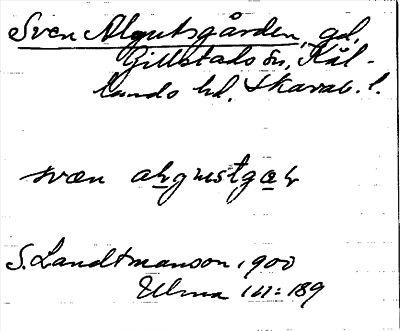 Sven Algutsgården, gd,
Gillstads sn, Kål-
lands hd. Skarab. l.
svæn algustgaɽ
S. Landtmanson 1900
Ulma 141:189